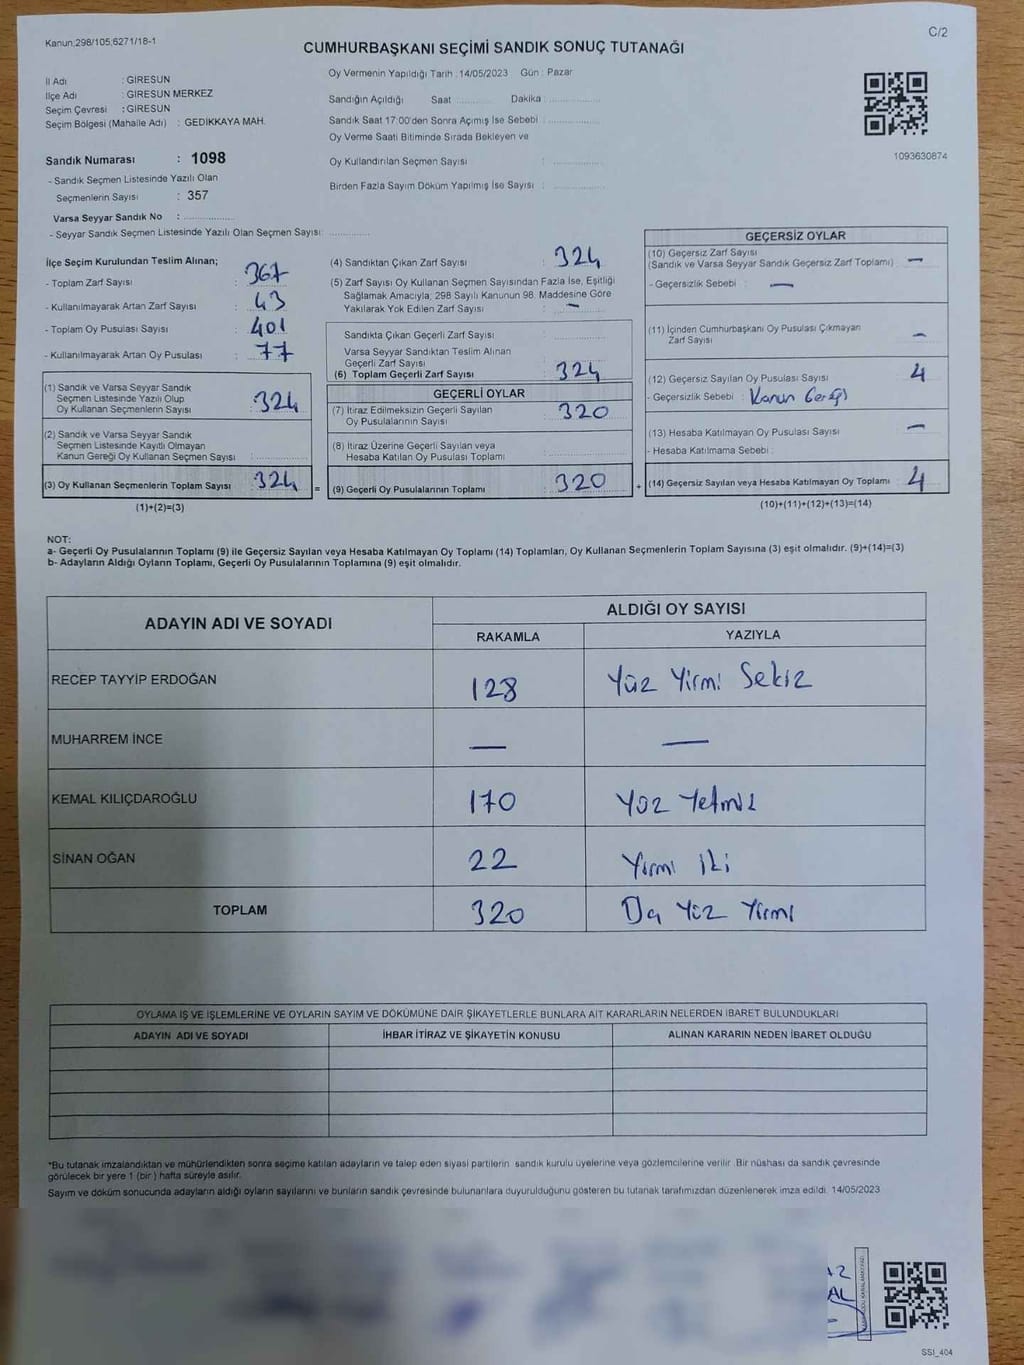 Kanun;298/105;6271/18-1
C/2
CUMHURBAŞKANI SEÇİMİ SANDIK SONUÇ TUTANAĞI
İl Adı : GİRESUN
İlçe Adı : GİRESUN MERKEZ
Seçim Çevresi : GİRESUN
Seçim Bölgesi (Mahalle Adı) : GEDİKKAYA MAH.
Oy Vermenin Yapıldığı Tarih : 14/05/2023 Gün : Pazar
Sandığın Açıldığı Saat ............ Dakika : ..................
Sandık Saat 17:00'den Sonra Açımış İse Sebebi : ..................
Oy Verme Saati Bitiminde Sırada Bekleyen ve
Oy Kullandırılan Seçmen Sayısı : ..................
Birden Fazla Sayım Döküm Yapılmış İse Sayısı : ..................
1093630874
Sandık Numarası : 1098
- Sandık Seçmen Listesinde Yazılı Olan
Seçmenlerin Sayısı : 357
Varsa Seyyar Sandık No : ..................
- Seyyar Sandık Seçmen Listesinde Yazılı Olan Seçmen Sayısı: ..............
İlçe Seçim Kurulundan Teslim Alınan;
- Toplam Zarf Sayısı : 367
- Kullanılmayarak Artan Zarf Sayısı : 43
- Toplam Oy Pusulası Sayısı : 401
- Kullanılmayarak Artan Oy Pusulası : 77
(1) Sandık ve Varsa Seyyar Sandık
Seçmen Listesinde Yazılı Olup
Oy Kullanan Seçmenlerin Sayısı : 324
(2) Sandık ve Varsa Seyyar Sandık
Seçmen Listesinde Kayıtlı Olmayan
Kanun Gereği Oy Kullanan Seçmen Sayısı : ..............
(3) Oy Kullanan Seçmenlerin Toplam Sayısı : 324
(1)+(2)=(3)
(4) Sandıktan Çıkan Zarf Sayısı : 324
(5) Zarf Sayısı Oy Kullanan Seçmen Sayısından Fazla İse, Eşitliği
Sağlamak Amacıyla; 298 Sayılı Kanunun 98. Maddesine Göre
Yakılarak Yok Edilen Zarf Sayısı : —
Sandıkta Çıkan Geçerli Zarf Sayısı : ..............
Varsa Seyyar Sandıktan Teslim Alınan
Geçerli Zarf Sayısı : ..............
(6) Toplam Geçerli Zarf Sayısı 324
GEÇERLİ OYLAR
(7) İtiraz Edilmeksizin Geçerli Sayılan
Oy Pusulalarının Sayısı : 320
(8) İtiraz Üzerine Geçerli Sayılan veya
Hesaba Katılan Oy Pusulası Toplamı : ..............
= (9) Geçerli Oy Pusulalarının Toplamı : 320 +
GEÇERSİZ OYLAR
(10) Geçersiz Zarf Sayısı
(Sandık ve Varsa Seyyar Sandık Geçersiz Zarf Toplamı) : —
- Geçersizlik Sebebi : —
(11) İçinden Cumhurbaşkanı Oy Pusulası Çıkmayan
Zarf Sayısı : —
(12) Geçersiz Sayılan Oy Pusulası Sayısı : 4
- Geçersizlik Sebebi : Kanun Gereği
(13) Hesaba Katılmayan Oy Pusulası Sayısı : —
- Hesaba Katılmama Sebebi :
(14) Geçersiz Sayılan veya Hesaba Katılmayan Oy Toplamı : 4
(10)+(11)+(12)+(13)=(14)
NOT:
a- Geçerli Oy Pusulalarının Toplamı (9) ile Geçersiz Sayılan veya Hesaba Katılmayan Oy Toplamı (14) Toplamları, Oy Kullanan Seçmenlerin Toplam Sayısına (3) eşit olmalıdır. (9)+(14)=(3)
b- Adayların Aldığı Oyların Toplamı, Geçerli Oy Pusulalarının Toplamına (9) eşit olmalıdır.
ADAYIN ADI VE SOYADI ALDIĞI OY SAYISI
RAKAMLA YAZIYLA
RECEP TAYYİP ERDOĞAN 128 Yüz Yirmi Sekiz
MUHARREM İNCE — —
KEMAL KILIÇDAROĞLU 170 Yüz Yetmiş
SİNAN OĞAN 22 Yirmi iki
TOPLAM 320 Yüz Yirmi
OYLAMA İŞ VE İŞLEMLERİNE VE OYLARIN SAYIM VE DÖKÜMÜNE DAİR ŞİKAYETLERLE BUNLARA AİT KARARLARIN NELERDEN İBARET BULUNDUKLARI
ADAYIN ADI VE SOYADI İHBAR İTİRAZ VE ŞİKAYETİN KONUSU ALINAN KARARIN NEDEN İBARET OLDUĞU
*Bu tutanak imzalandıktan ve mühürlendikten sonra seçime katılan adayların ve talep eden siyasi partilerin sandık kurulu üyelerine veya gözlemcilerine verilir. Bir nüshası da sandık çevresinde
görülecek bir yere 1 (bir) hafta süreyle asılır.
Sayım ve döküm sonucunda adayların aldığı oyların sayılarını ve bunların sandık çevresinde bulunanlara duyurulduğunu gösteren bu tutanak tarafımızdan düzenlenerek imza edildi. 14/05/2023
SSI_404